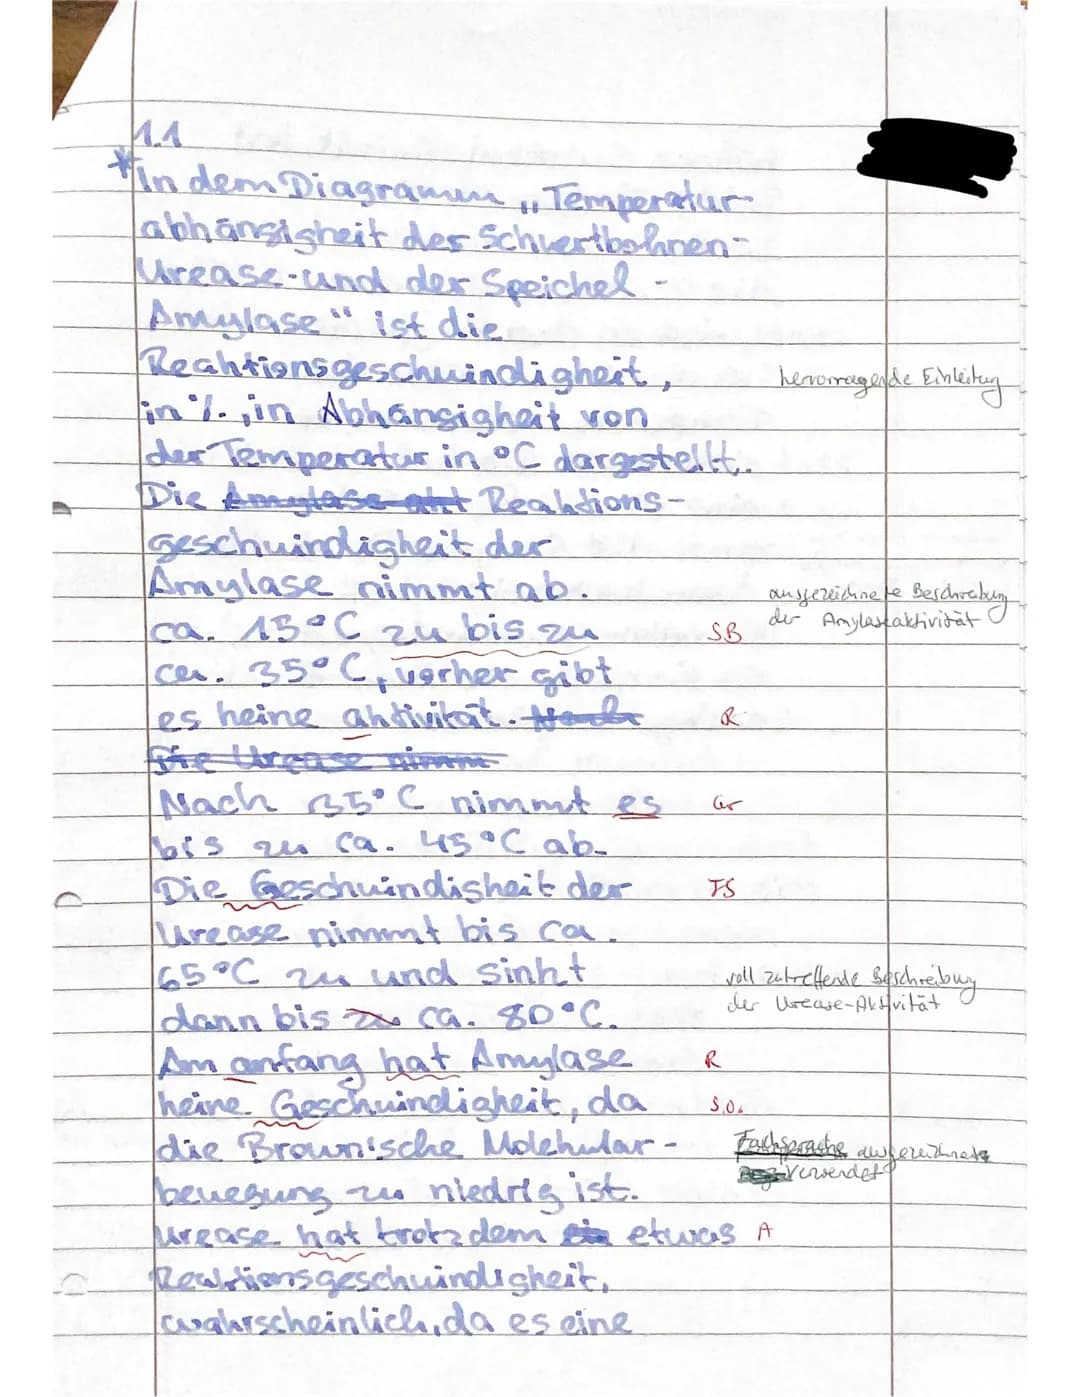 1.1
*In dem Diagramm „Temperatur-
abhängigkeit der Schwertbohnen-
Urease-und der Speichel-
Amylase" ist die
Reaktionsgeschwindigkeit,
hervorragende Einleitung
in %, in Abhängigkeit von
der Temperatur in °C dargestellt.
Die Amylase Reaktions-
geschwindigkeit der
Amylase nimmt ab.
ausgezeichnete Beschreibung
der Amylaseaktivität
ca. 15°C zu bis zu
SB
ca. 35°C, vorher gibt
es keine aktivität.
R
Die Urease nimm
Nach 35°C nimmt es
Gr
bis zu ca. 45°C ab.
Die Geschwindigkeit der
FS
Urease nimmt bis ca.
65°C zu und sinkt
voll zutreffende Beschreibung
der Urease-Aktivität
dann bis zu ca. 80°C.
Am anfang hat Amylase
R
keine Geschwindigkeit, da
s.o.
die Brown'sche Molekular-
Fachsprache ausgezeichnet
verwendet
bewegung zu niedrig ist.
Urease hat trotzdem etwas
A
Reaktionsgeschwindigkeit,
wahrscheinlich, da es eine